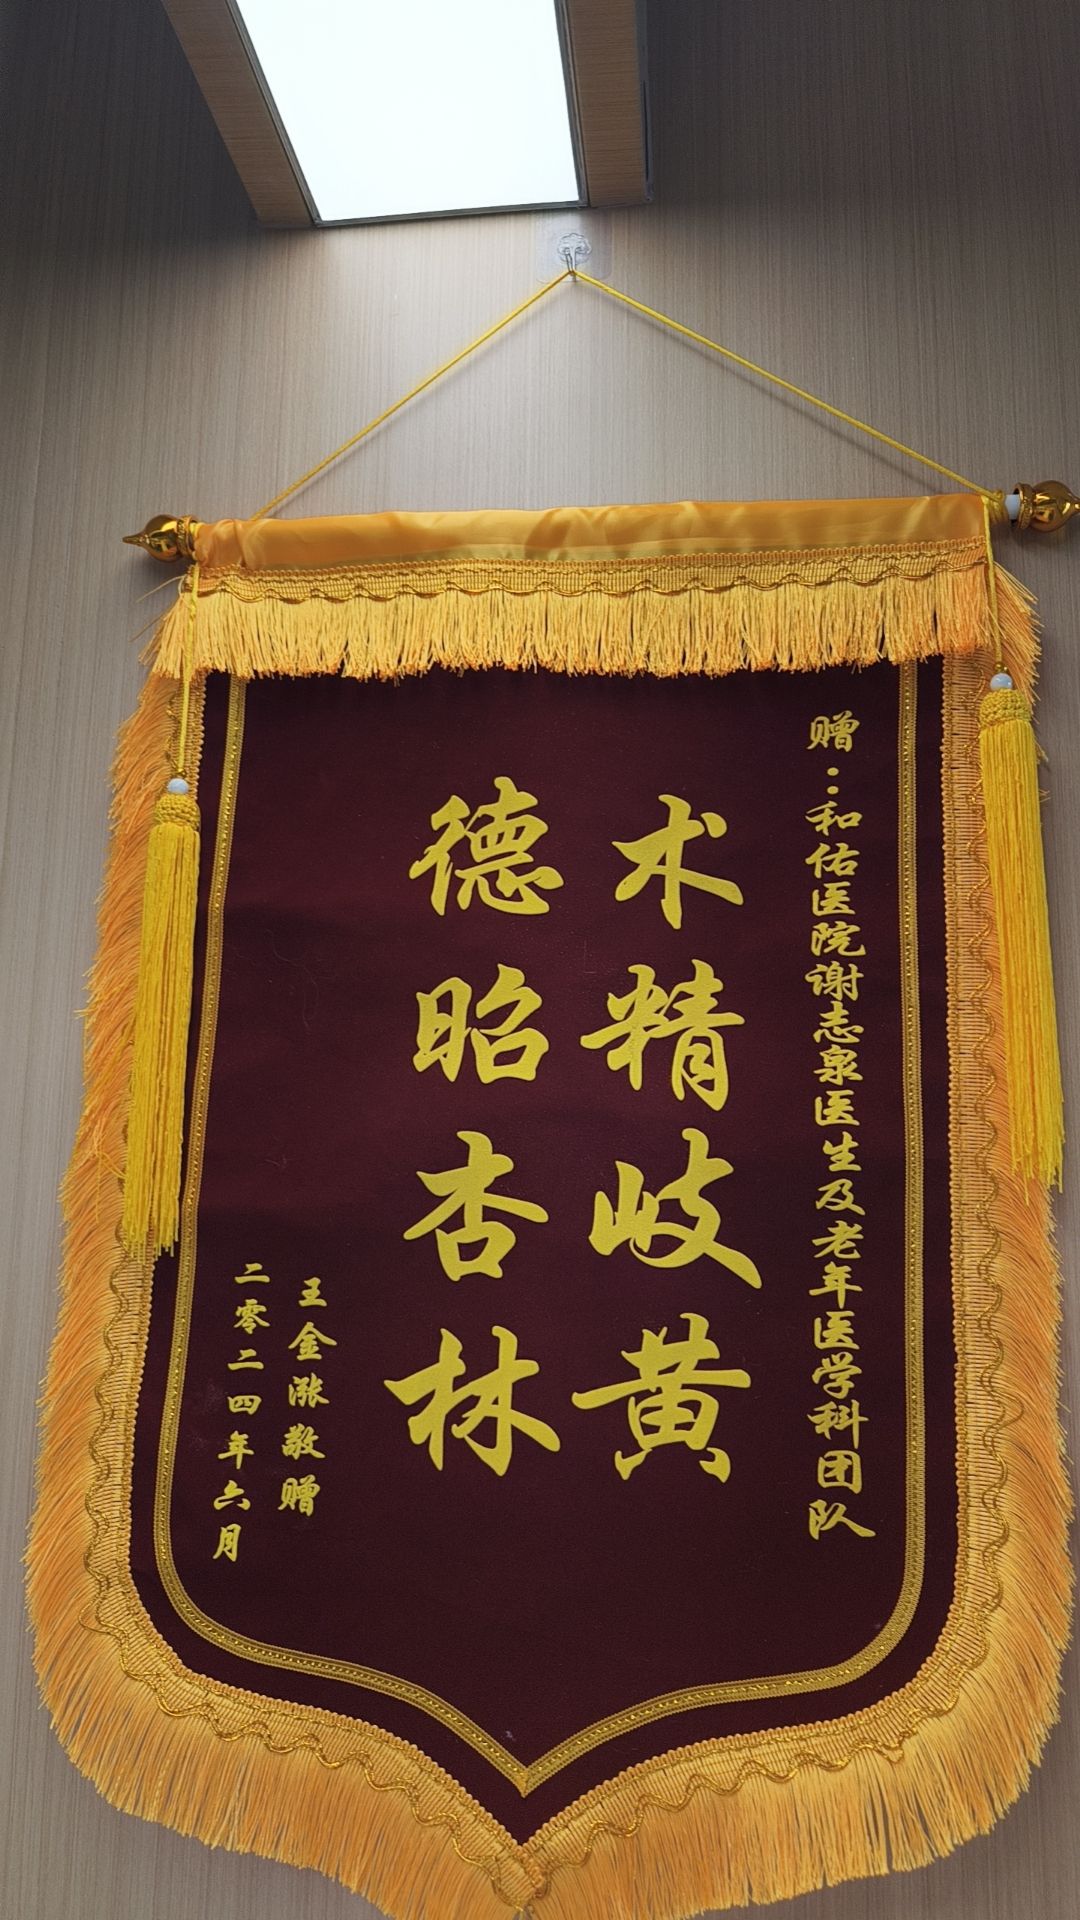 赠：和佑医院谢志泉医生及老年医学科团队
术精岐黄
德昭杏林
王金涨敬赠
二零二四年六月